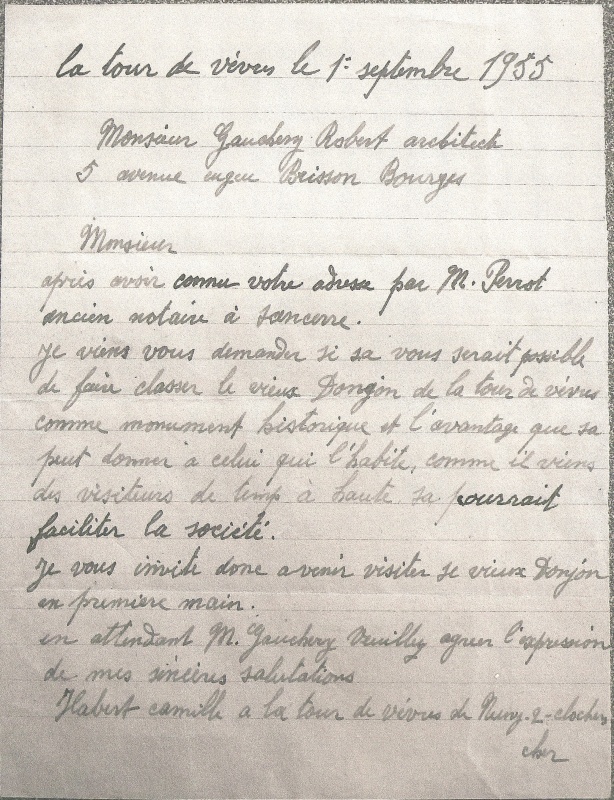 la tour de vèves le 1e septembre 1955
Monsieur Gauchery Robert architecte
5 avenue eugene Brisson Bourges
Monsieur
après avoir connu votre adresse par M. Perrot
ancien notaire à Sancerre.
je viens vous demander si sa vous serait possible
de faire classer le vieux Donjon de la tour de vèves
comme monument historique et l'avantage que sa
peut donner à celui qui l'habite, comme il viens
des visiteurs de temp à haute sa pourrait
faciliter la société.
Je vous invite donc a venir visiter se vieux Donjon
en premiere main.
en attendant M. Gauchery Veuilley agreer l'expression
de mes sincères salutations
Habert camille a la tour de vèves de Neuvy-2-clochers
cher